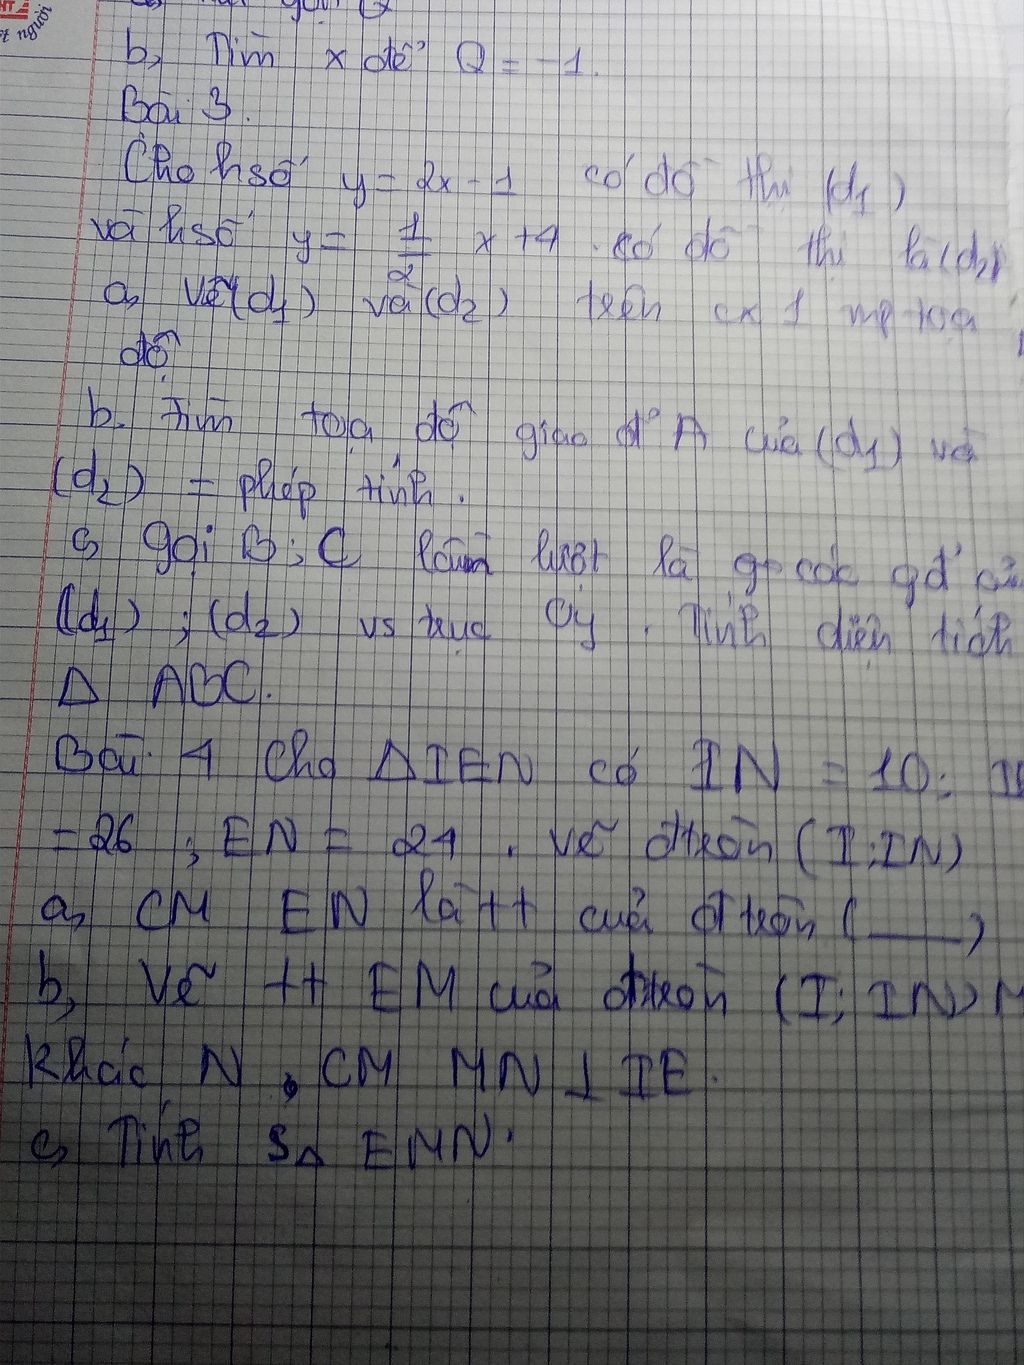 người
b, Tìm x để Q = -1.
Bài 3.
Cho hsố y = 2x - 1 có đồ thị (d1)
và hsố y = 1/2 x + 4 . có đồ thị là (d2)
a, Vẽ (d1) và (d2) trên cx 1 mp tọa
độ
b. Tìm tọa độ giao đ' A của (d1) và
(d2) = phép tính.
c, gọi B; C lần lượt là các gđ' củ
(d1) ; (d2) vs trục Oy . Tính diện tích
Δ ABC.
Bài 4 Cho ΔIEN có IN = 10;
= 26 ; EN = 24 . vẽ đtròn (I; IN)
a, CM EN là tt của đtròn (____)
b, Vẽ tt EM của đtròn (I; IN) M
khác N , CM MN ⊥ IE.
c, Tính SΔ EMN.